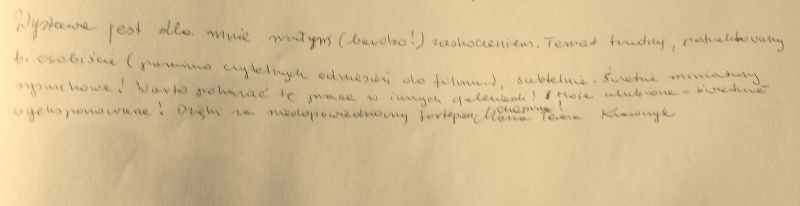 Wystawa jest dla mnie miłym (bardzo!) zaskoczeniem. Temat trudny, potraktowany
b. osobiście (pomimo czytelnych odniesień do filmu..), subtelnie. Świetne miniatury
rysunkowe! Warto pokazać te prace w innych galeriach! Moje ulubione - świetnie
wyeksponowane! Dzięki za niedopowiedziany fortepian Chopina! Maria Teresa Krawczyk